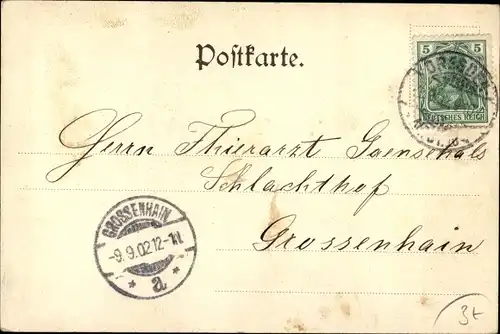 Postkarte.
5 5
DEUTSCHES REICH
DRESDEN
Herrn Thierarzt Gaensehals
Schlachthof
Grossenhain
GROSSENHAIN
-9.9.02.12-1N.
* a *
3t